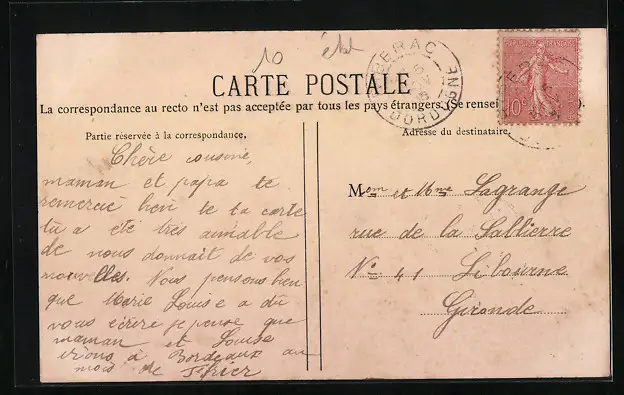 10
CARTE POSTALE
La correspondance au recto n'est pas acceptée par tous les pays étrangers. (Se rensei
Partie réservée à la correspondance.
Adresse du destinataire.
BERGERAC
DORDOGNE
10c
Chère cousine,
maman et papa te
remercie bien de ta carte
tu a été très aimable
de nous donnait de vos
nouvelles. Nous pensons bien
que Marie Louise a du
vous écrire je pense que
maman et Louise
irons à Bordeaux au
mois de
Mem et Mme Lagrange
rue de la Sallierre
No 41 Libourne
Gironde